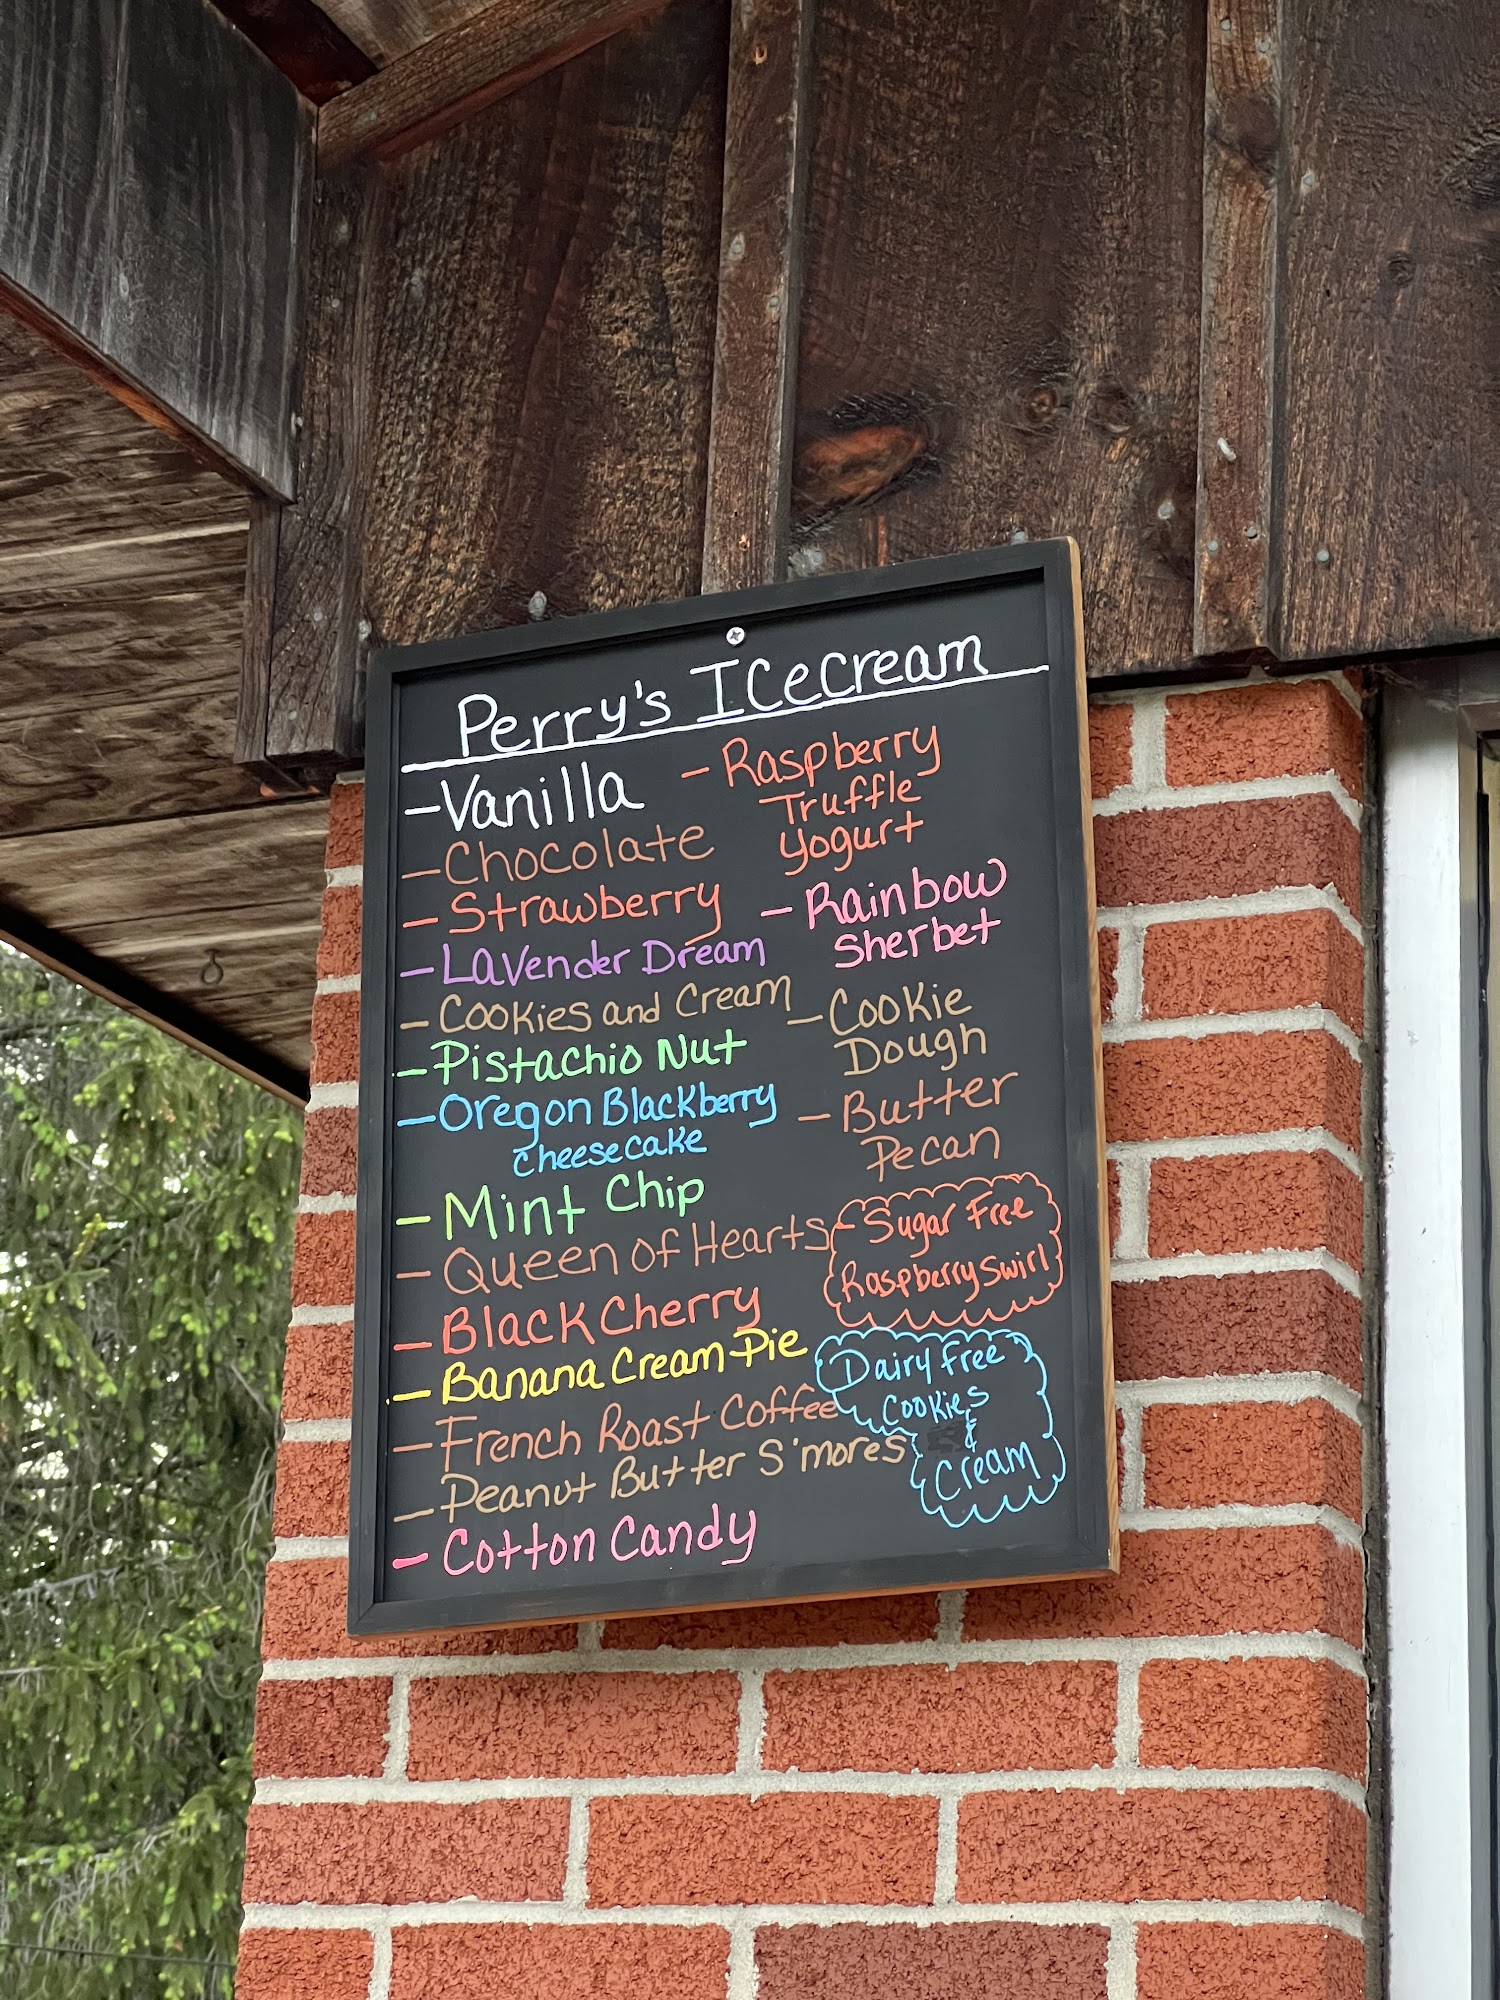 Perry's ICecream
- Vanilla
- Chocolate
- Strawberry
- Lavender Dream
- Cookies and Cream
- Pistachio Nut
- Oregon Blackberry
Cheesecake
- Mint Chip
- Queen of Hearts
- Black Cherry
- Banana Cream Pie
- French Roast Coffee
- Peanut Butter S'mores
- Cotton Candy
- Raspberry
Truffle
Yogurt
- Rainbow
Sherbet
- Cookie
Dough
- Butter
Pecan
- Sugar Free
Raspberry Swirl
Dairy Free
Cookies
&
Cream